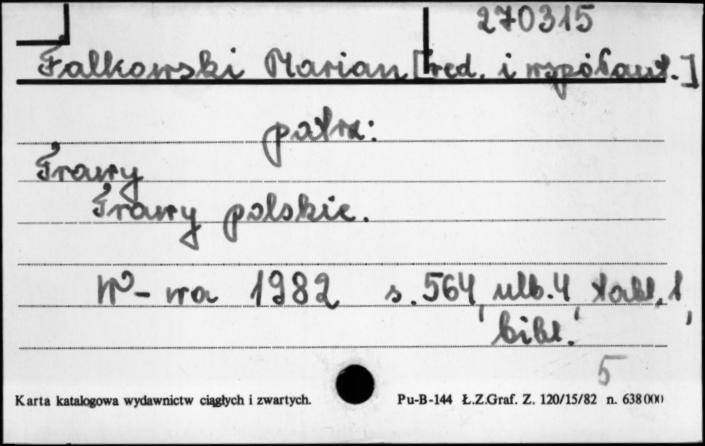 270315
Falkowski Marian [red. i współaut.]
patrz:
Trawy
Trawy polskie.
W-wa 1982 s. 564, ulb. 4, tabl. 1,
bibl.
5
Karta katalogowa wydawnictw ciągłych i zwartych. Pu-B-144 Ł.Z.Graf. Z. 120/15/82 n. 638000